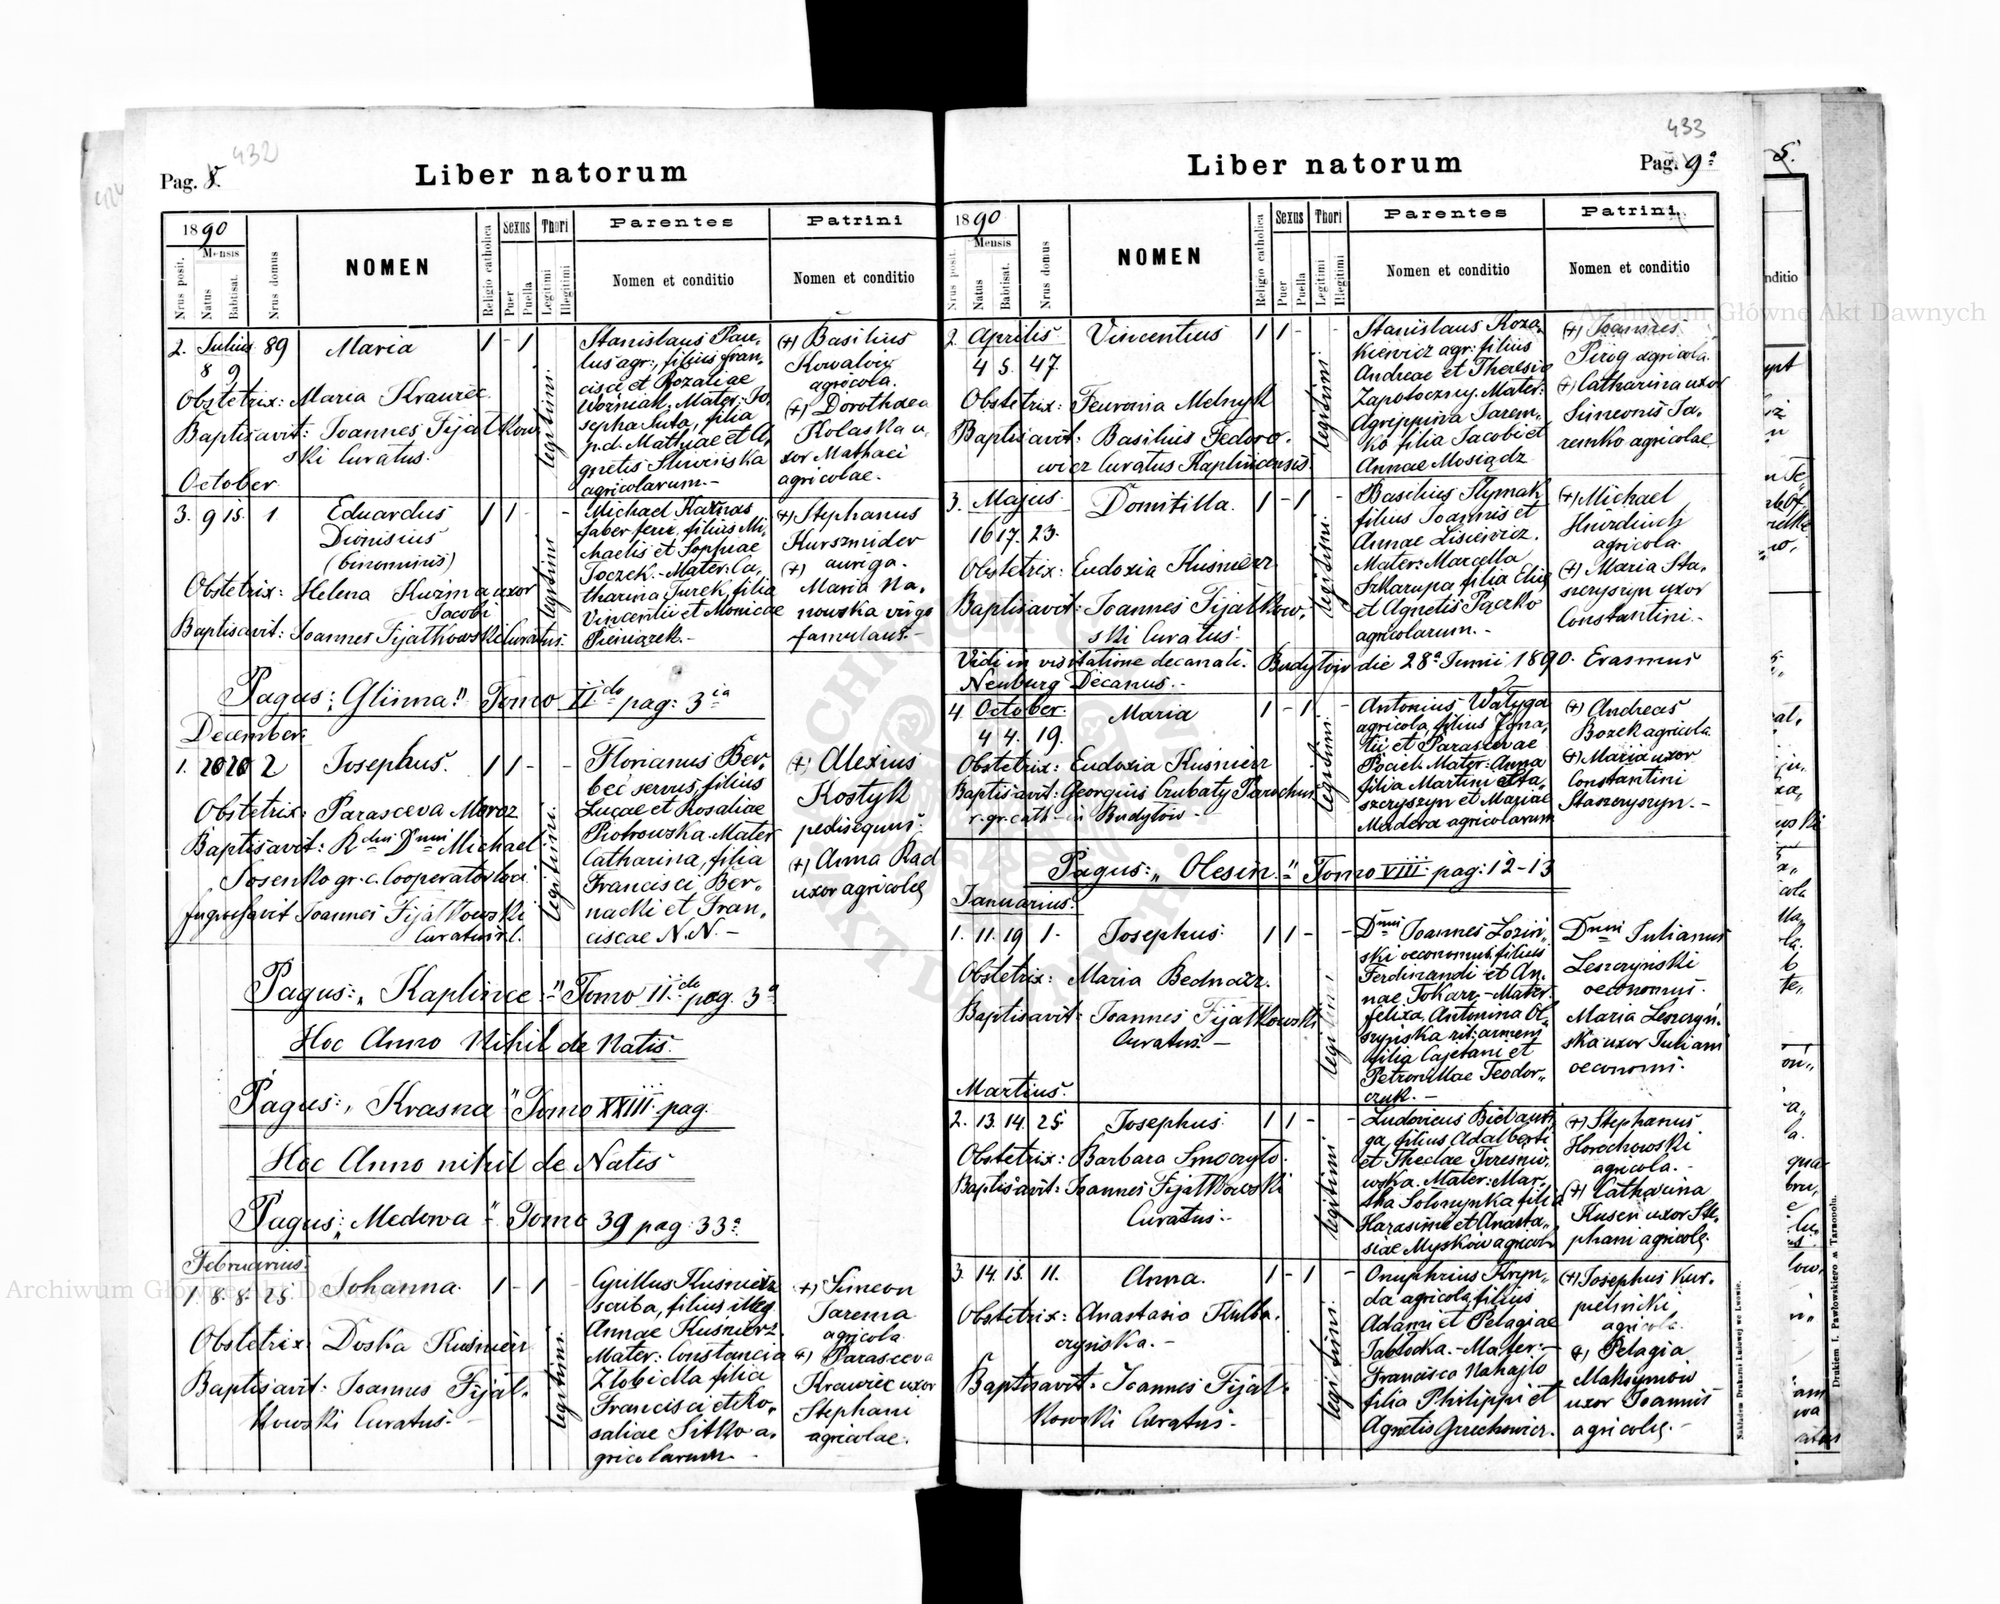 432
Pag. 8.
Liber natorum
1890
Mensis
Nrus posit.
Natus
Babtisat.
Nrus domus
NOMEN
Religio catholica
Sexus
Puer
Puella
Thori
Legitimi
Illegitimi
Parentes
Nomen et conditio
Patrini
Nomen et conditio
2. Julius 89 Maria 1 - 1
8 9
Obstetrix: Maria Krawiec
Baptisavit: Joannes Fijałkow
ski Curatus.
legitimi.
Stanislaus Pau-
lus agr:, filius Fran-
cisci et Rozaliae
Woźniak. Mater: Jo,
sepha Luta, filia
p.d. Mathiae et A,
gnetis Śliwińska
agricolarum.-
(+) Basilius
Kowalow
agricola.
(+) Dorothaea
Kolaska u,
xor Mathaei
agricolae.
October
3. 9 15. 1 Eduardus 1 1 - -
Dionisius
(binominis)
Obstetrix: Helena Kuzma uxor
Jacobi
Baptisavit: Joannes Fijałkowski Curatus.
legitimi
Michael Karnas
faber ferr, filius Mi,
chaelis et Sophiae
Toczek.- Mater: Ca,
tharina Turek, filia
Vincentii et Monicae
Pieniązek.-
(+) Stephanus
Kursznider
(+) auriga.
Maria Na,
nowska virgo
famulans.-
Pagus: "Glinna" Tomo II do pag: 3 ia
December.
1. 20 20 2 Josephus. 1 1 - -
Obstetrix: Parasceva Moroz
Baptisavit: Rdus Dnus Michael
Josenko gr. c. Cooperator loci
Ingrossavit Joannes Fijałkowski
Curatus r.l.
legitimi.
Florianus Ber,
beć servus, filius
Lucae et Rosaliae
Piotrowska. Mater
Catharina, filia
Francisci Ber-
nacki et Fran,
ciscae N.N.-
(+) Alexius
Kostyk
pedisequus.
(+) Anna Rad
uxor agricolę
Pagus: "Kaplince" Tomo II do pag. 3 a
Hoc Anno Nihil de Natis.
Pagus: "Krasna" Tomo XXIII. pag.
Hoc Anno nihil de Natis
Pagus: "Medowa" Tomo 39 pag: 33 a
Februarius.
1. 8. 8. 25. Johanna. 1 - 1 -
Obstetrix: Doska Kuśnierz
Baptisavit: Joannes Fijał-
kowski Curatus.-
legitimi.
Cyrillus Kuśnierz
scriba, filius illeg.
Annae Kuśnierz.
Mater: Constancia
Złobicka filia
Francisci et Ro,
saliae Sitko a,
gricolarum.-
(+) Simeon
Jarema
agricola
(+) Parasceva
Krawiec uxor
Stephani
agricolae.
433
Pag. 9 a
Liber natorum
1890
Mensis
Nrus posit.
Natus
Babtisat.
Nrus domus
NOMEN
Religio catholica
Sexus
Puer
Puella
Thori
Legitimi
Illegitimi
Parentes
Nomen et conditio
Patrini
Nomen et conditio
2. Aprilis Vincentius 1 1 - -
4 5. 47.
Obstetrix: Feuronia Melnyk
Baptisavit: Basilius Fedoro-
wicz Curatus Kaplincensis.
legitimi.
Stanislaus Koza,
kiewicz agr: filius
Andreae et Theresiae
Zapotoczny. Mater:
Agrippina Jarem-
ko filia Jacobi et
Annae Mosiądz
(+) Joannes
Pirog agricola.
(+) Catharina uxor
Simeonis Ja-
remko agricolae
3. Majus. Domitilla. 1 - 1 -
16 17. 23.
Obstetrix: Eudoxia Kuśnierz
Baptisavit: Joannes Fijałkow,
ski Curatus.
legitimi.
Basilius Slymak
filius Joannis et
Annae Lisiewicz.
Mater: Marcella
Szkarupa filia Elię
et Agnetis Pączko
agricolarum.-
(+) Michael
Hurdisch
agricola.
(+) Maria Sta-
szczyszyn uxor
Constantini.-
Vidi in visitatione decanali. Budytów die 28 a Junii 1890. Erasmus
Neuburg Decanus.-
4. October. Maria 1 - 1 -
4 4. 19.
Obstetrix: Eudoxia Kuśnierz
Baptisavit: Georgius Czubaty Parochus
r. gr. cath. in Budytów-
legitimi.
Antonius Watyga
agricola, filius Igna,
tii et Parascevae
Pocieli. Mater: Anna
filia Martini Sta,
szczyszyn et Mariae
Madera agricolarum
(+) Andreas
Bozek agricola
(+) Maria uxor
Constantini
Staszczyszyn.-
Pagus: "Olesin." Tomo VIII pag: 12-13
Januarius.
1. 11. 19 1. Josephus. 1 1 - -
Obstetrix: Maria Bednarz.
Baptisavit: Joannes Fijałkowski
Curatus.-
legitimi
Dnus Joannes Loziń,
ski oeconomus, filius
Ferdinandi et An,
nae Tokarz.- Mater.
Felixa Antonina Ol-
szyńska rit: armeni
filia Cajetani et
Petronillae Teodor-
czuk.-
Dnus Julianus
Leszczyński
oeconomus.
Maria Leszczyń-
ska uxor Juliani
oeconomi.
Martius.
2. 13. 14. 25. Josephus. 1 1 - -
Obstetrix: Barbara Smoczyło.
Baptisavit: Joannes Fijałkowski
Curatus.-
legitimi
(+) Stephanus
Horochowski
agricola.-
(+) Catharina
Kuseń uxor Ste,
phani agricolę.
3. 14. 15. 11. Anna. 1 - 1 -
Obstetrix: Anastasia Kulba,
czyńska.-
Baptisavit. Joannes Fijał-
kowski Curatus.-
legitimi.
Onuphrius Kryn-
da agricola, filius
Adami et Pelagiae
Jabłocka.- Mater:-
Francisca Nahajło
filia Philippi et
Agnetis Gruchowicz.
(+) Josephus Kur,
pelnicki
agricola.
(+) Pelagia
Maksymow
uxor Joannis
agricolę.-
Nakładem Drukarni Ludowej we Lwowie.
Drukiem I. Pawłowskiego w Tarnopolu.
Archiwum Główne Akt Dawnych
Archiwum Główne Akt Dawnych